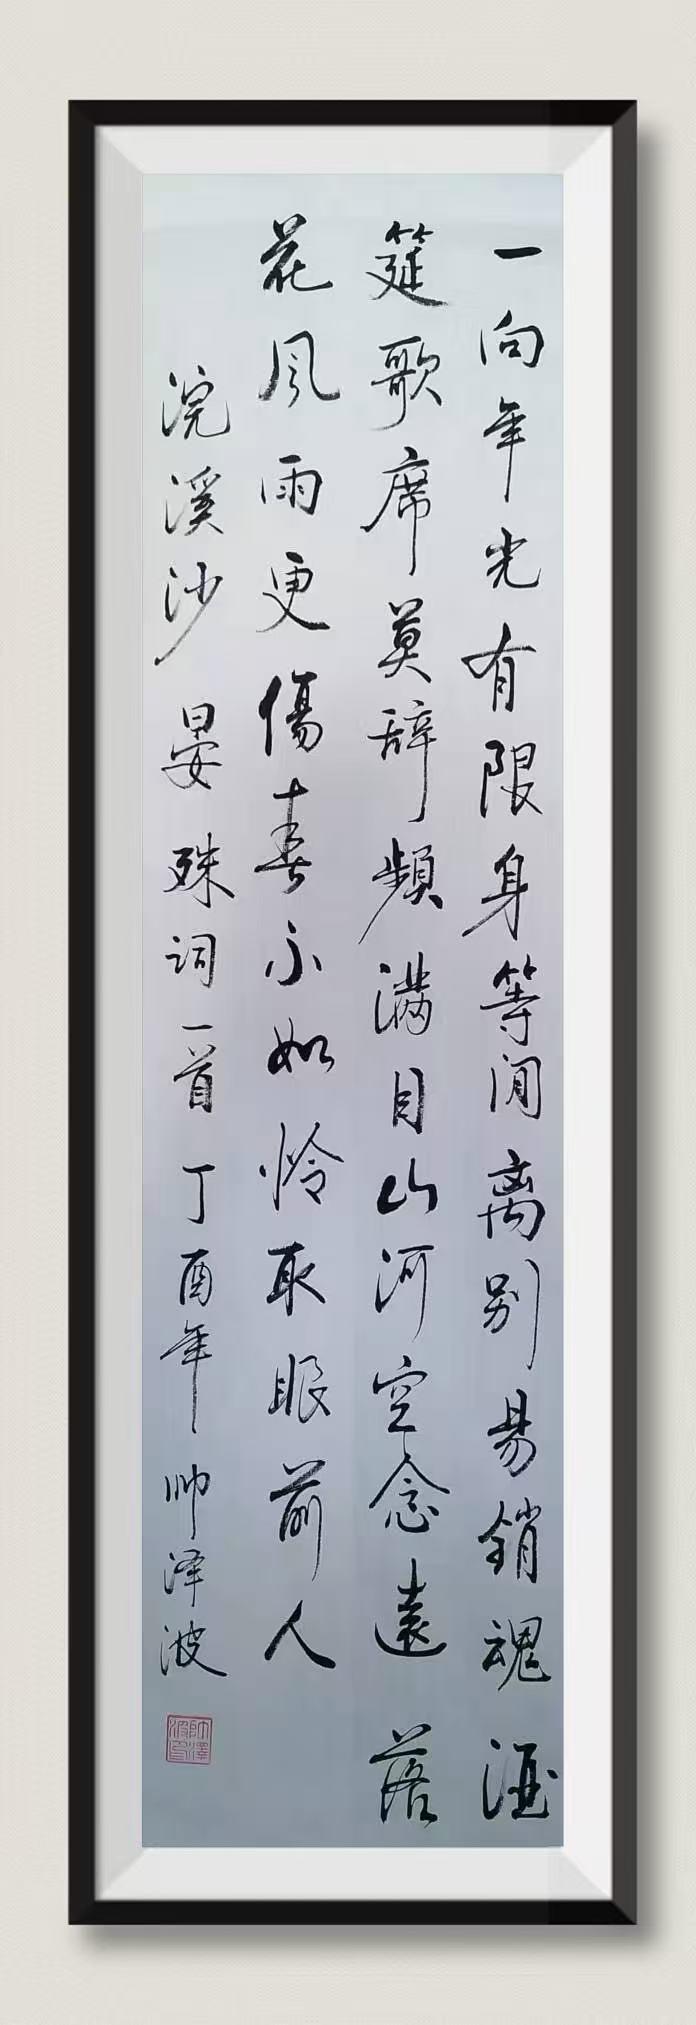 一向年光有限身等闲离别易销魂酒
筵歌席莫辞频满目山河空念遠落
花风雨更傷春不如怜取眼前人
浣溪沙 晏殊词一首 丁酉年 帅泽波
帅澤波印